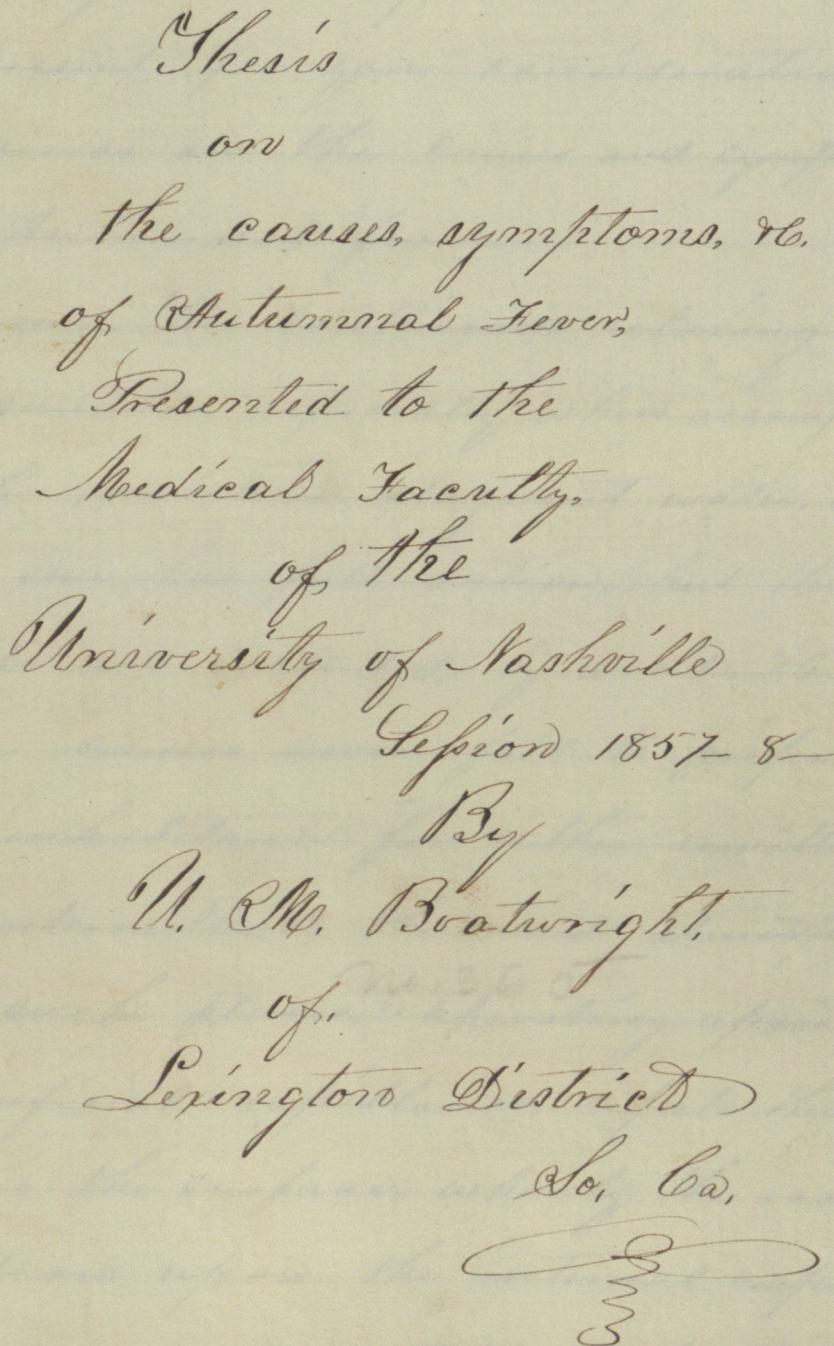 Thesis
on
the causes, symptoms, &c.
of Autumnal Fever,
Presented to the
Medical Faculty,
of the
University of Nashville
Session 1857–8–
By
U. M. Boatwright,
of,
Lexington District
So, Ca,